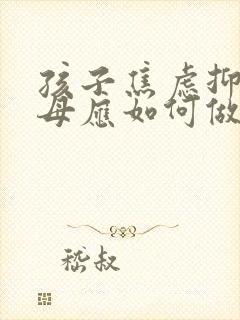 孩子焦虑抑
母应如何做
嵇叔